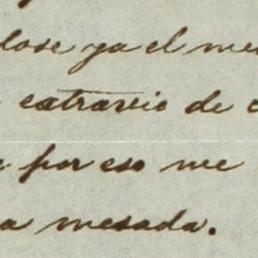 dose ya el me
extravio de c
e por eso me
a mesada.